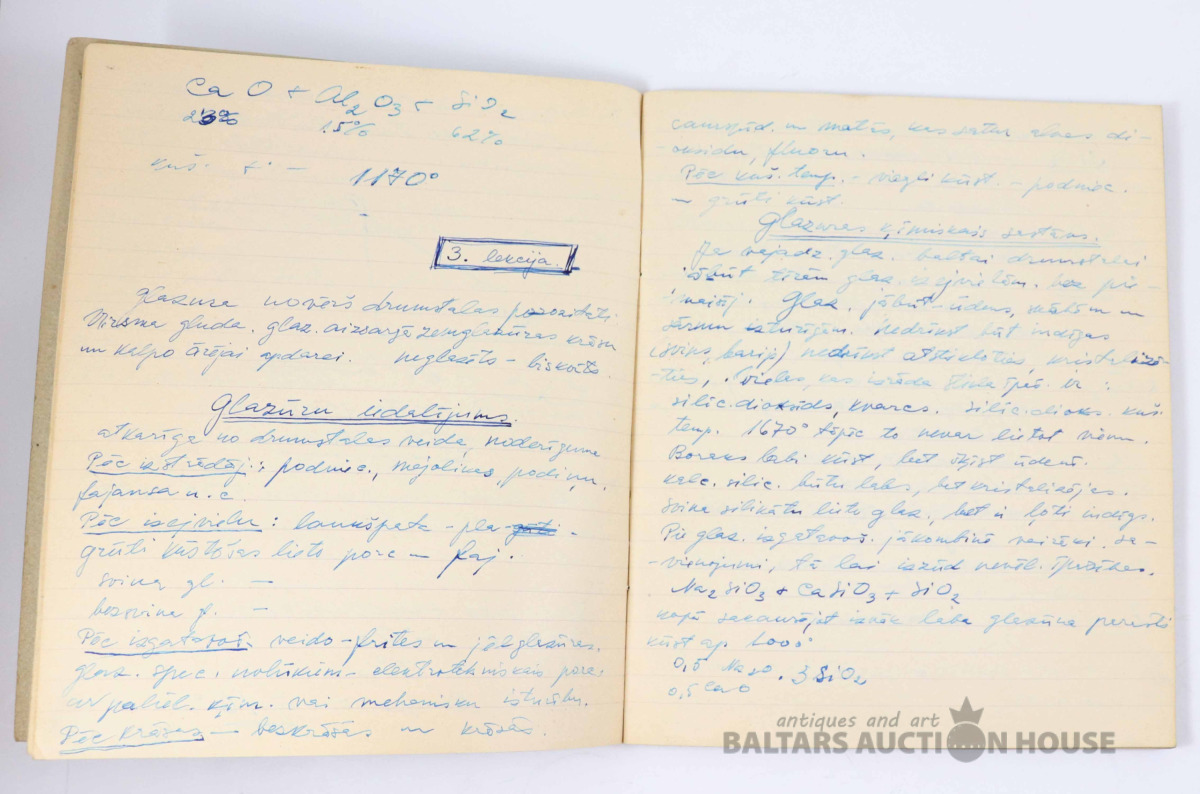 CaO + Al2O3 + SiO2
23% 15% 62%
kuš. t° — 1170°
3. lekcija.
Glazura novērš drumstalas porozitāti.
Virsma gluda. glaz. aizsargā zemglazūras krāsu
un kalpo ārējai apdarei. neglazēts - biskvīts.
Glazūru iedalījums.
atkarīga no drumstalas veida, noderīguma
Pēc izstrādāj.: podniec., majolikas, podiņu,
fajansa u.c.
Pēc izejvielu: laukšpata -
grūti kūstošas lieto porc — faj.
svina gl. —
bezsvina gl. —
Pēc izgatavoš. veida - frites un jēlglazūras.
glaz. spec. nolūkiem - elektrotehniskais porc.
paliel. ķīm. vai mehanisku izturību.
Pēc krāsas — bezkrāsas un krāsās.
caurspīd. un matās, kas satur alvas di-
-oksidu, fluoru.
Pēc kuš. temp. - viegli kūst. - podniec.
— grūti kūst.
Glazuras ķīmiskais sastāvs.
Ja vajadz. glaz. baltai drumstalai
jābūt tīrām glaz. izejvielām, bez pie-
maisīj. Glaz. jābūt ūdens, skābju un
sārmu izturīgām. Nedrīkst būt indīgas
(svins, barijs) nedrīkst atstikloties, kristalizē-
-ties, Vielas, kas izrāda stikla īpaš. ir:
silic. dioksīds, kvarcs. silic. dioks. kuš.
temp. 1670° tāpēc to nevar lietot vienu.
Boraks labi kūst, bet šķīst ūdenī.
kalc. silic. būtu labs, bet kristalizējas.
Svina silikātu lieto glaz., bet ir ļoti indīgs.
Pie glaz. izgatavoš. jākombinē vairāki sa-
-vienojumi, tā lai izzūd nevēl. īpašības.
Na2SiO3 + CaSiO3 + SiO2
kopā sakausējot iznāk laba glazūra
kūst ap. 1000°
0,5 Na2O · 3SiO2
0,5 CaO
antiques and art
BALTARS AUCTION HOUSE